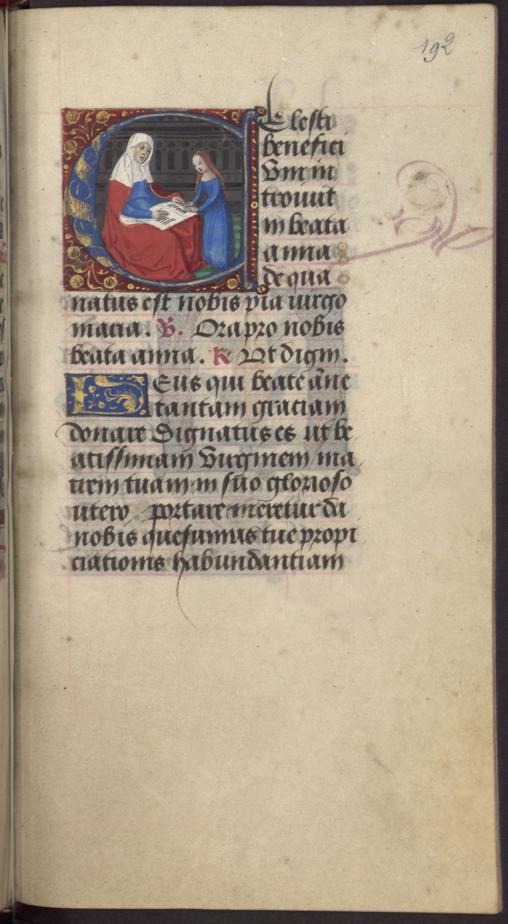 192
Elesti
benefici
Vm in
trouut
in beata
anna
de qua
natus est nobis pia uirgo
maria. V. Ora pro nobis
beata anna. R Ut digni.
Eus qui beate āne
tantam graciam
donare Dignatus es ut be
atissimam Virginem ma
trem tuam in suo glorioso
utero portare meretur da
nobis quesumus tue propi
ciationis habundantiam